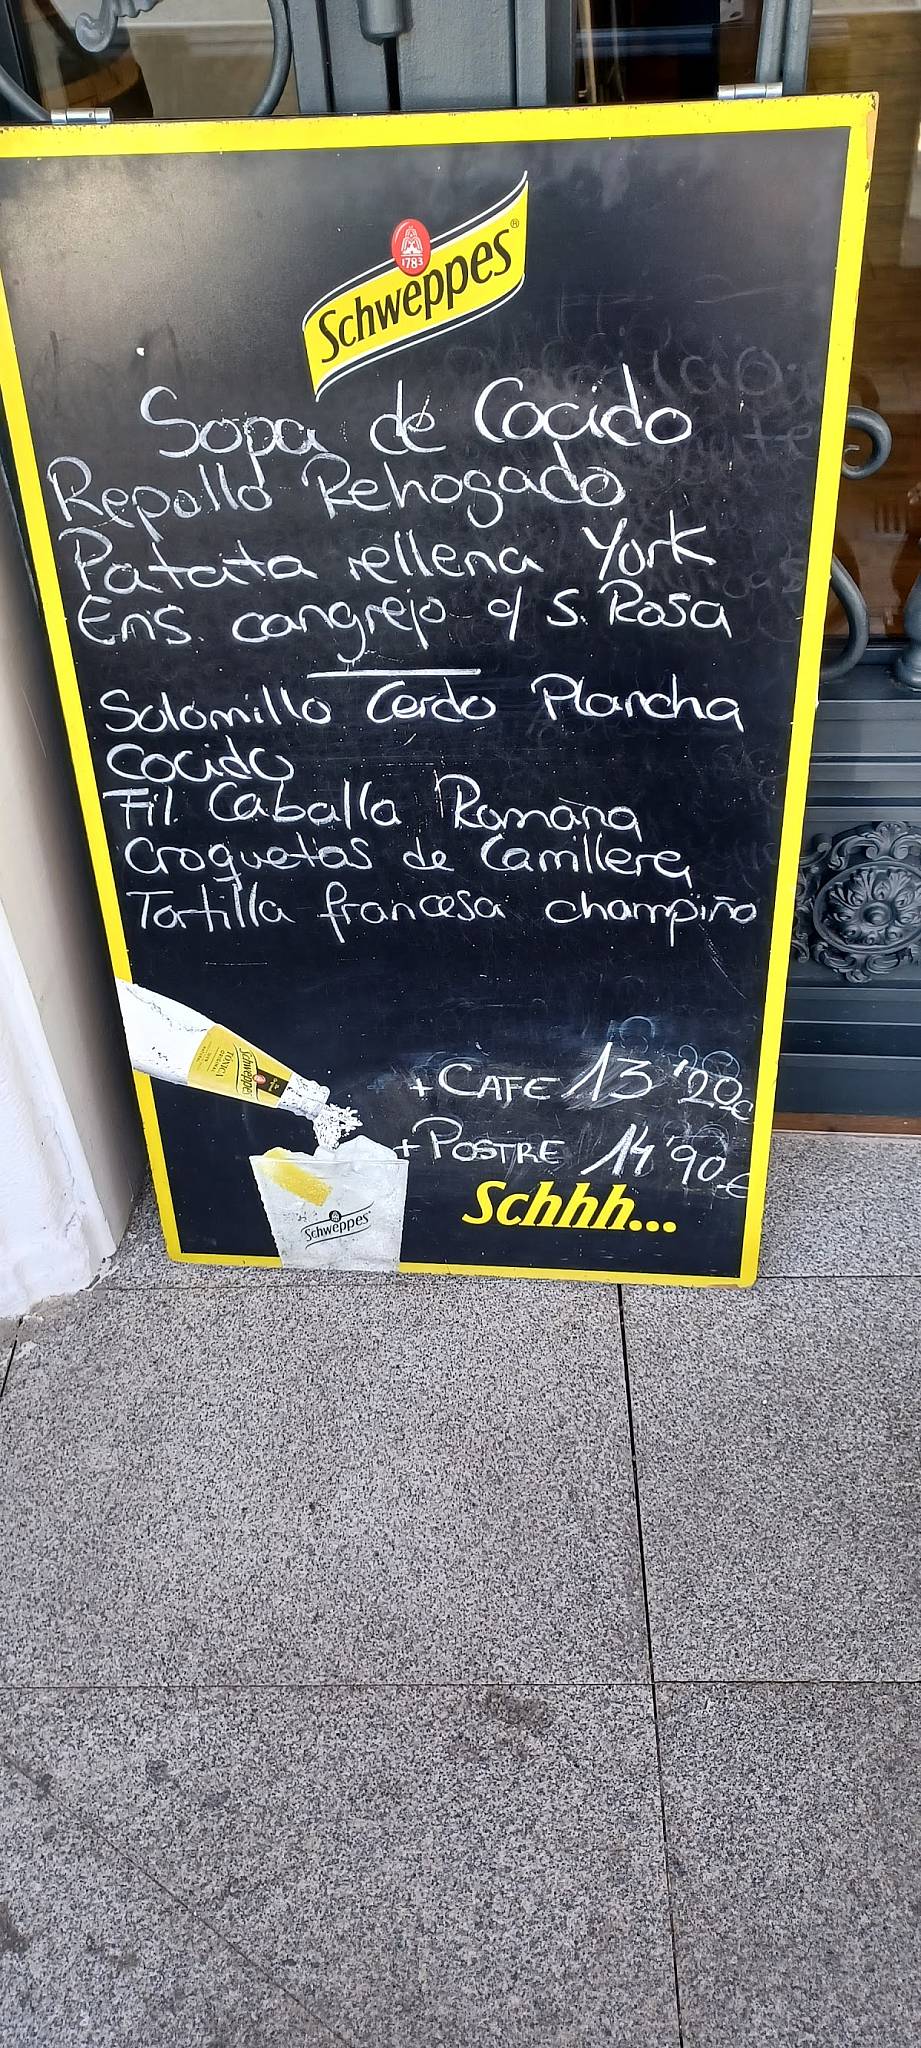 1783
Schweppes®
Sopa de Cocido
Repollo Rehogado
Patata rellena York
Ens. cangrejo c/ S. Rosa
Solomillo Cerdo Plancha
Cocido
Fil. Caballa Romana
Croquetas de Camillere
Tortilla francesa champiño
Schweppes
TÓNICA
+ CAFE 13'20€
+ POSTRE 14'90€
Schweppes
Schhh...